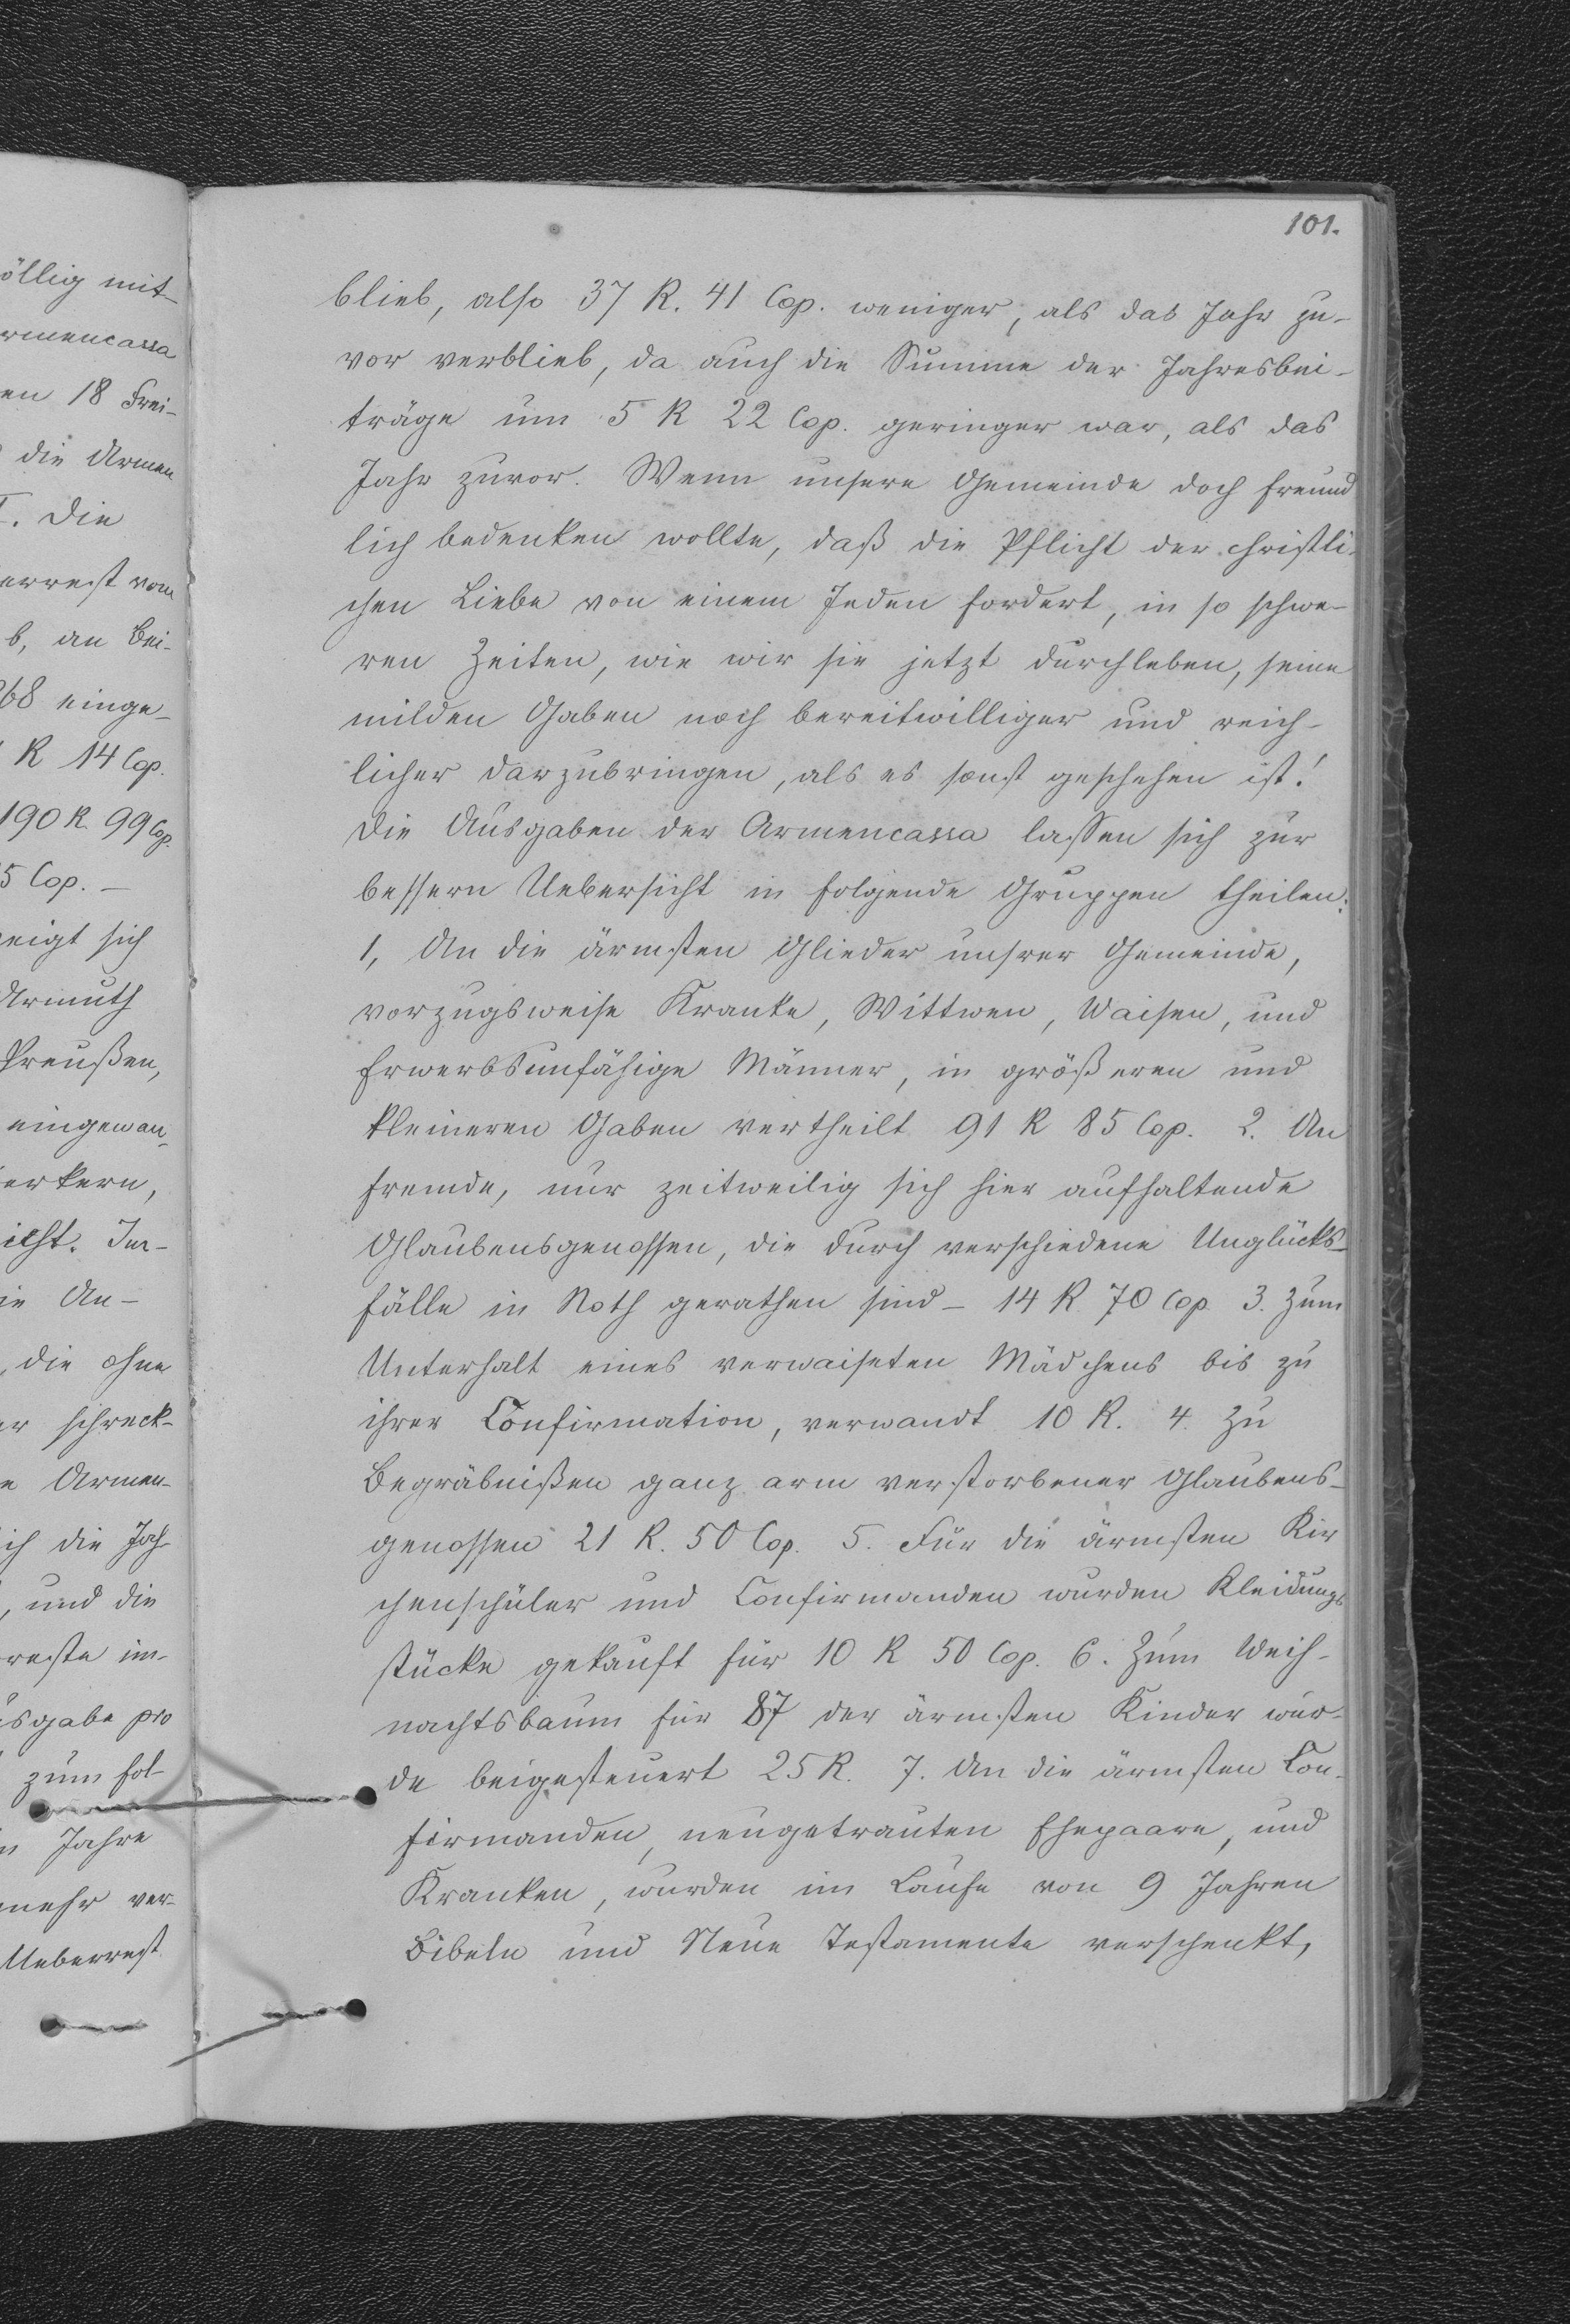 101.
blieb, also 37 R. 41 Cop. weniger, als das Jahr zu-
vor verblieb, da auch die Summe der Jahresbei-
träge um 5 R 22 Cop. geringer war, als das
Jahr zuvor. Wenn unsere Gemeinde doch freund
lich bedenken wollte, daß die Pflicht der christli-
chen Liebe von einem Jeden fordert, in so schwe-
ren Zeiten, wie wir sie jetzt durchleben, seine
milden Gaben noch bereitwilliger und reich-
licher darzubringen, als es sonst geschehen ist!
Die Ausgaben der Armencassa lassen sich zur
bessern Uebersicht in folgende Gruppen theilen:
1, An die ärmsten Glieder unsrer Gemeinde,
vorzugsweise Kranke, Wittwen, Waisen, und
Erwerbsunfähige Männer, in größeren und
kleineren Gaben vertheilt 91 R 85 Cop. 2. An
fremde, nur zeitweilig sich hier aufhaltende
Glaubensgenossen, die durch verschiedene Unglücks-
fälle in Noth gerathen sind - 14 R. 70 Cop. 3. Zum
Unterhalt eines verwaiseten Mädchens bis zu
ihrer Confirmation, verwandt 10 R. 4. Zu
Begräbnißen ganz arm verstorbener Glaubens-
genossen 21 R. 50 Cop. 5. Für die ärmsten Kir
chenschüler und Confirmanden wurden Kleidungs
stücke gekauft für 10 R 50 Cop. 6. Zum Weih-
nachtsbaum für 87 der ärmsten Kinder wur-
de beigesteuert 25 R. 7. An die ärmsten Con-
firmanden, neugetrauten Ehepaare, und
Kranken, wurden im Laufe von 9 Jahren
Bibeln und Neue Testamente verschenkt,